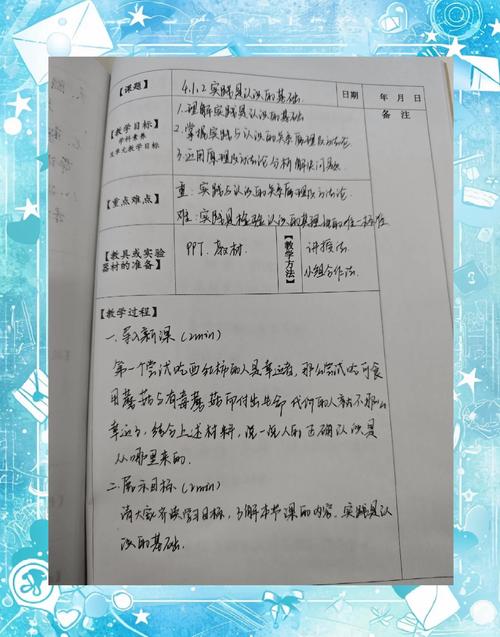 【课题】 4.1.2 实践是认识的基础 日期 年 月 日
【教学目标】 学科素养 及单元教学目标
1.理解实践是认识的基础
2.掌握实践与认识的关系原理及方法论
3.运用原理及方法论分析解决问题
备注
【重点难点】
重:实践与认识的关系原理及方法论
难:实践是检验认识的真理性的唯一标准
【教具或实验
器材的准备】
PPT. 教材
【教学方法】
讲授法
小组合作法
【教学过程】
一.导入新课(2min)
第一个尝试吃西红柿的人是幸运者,那么尝试吃可食
用蘑菇与有毒蘑菇而付出生命代价的人就不那么
幸运了,结合上述材料,说一说人的正确认识是
从哪里来的.
二.展示目标(2min)
请大家齐读学习目标,了解本节课的内容,实践是认
识的基础.